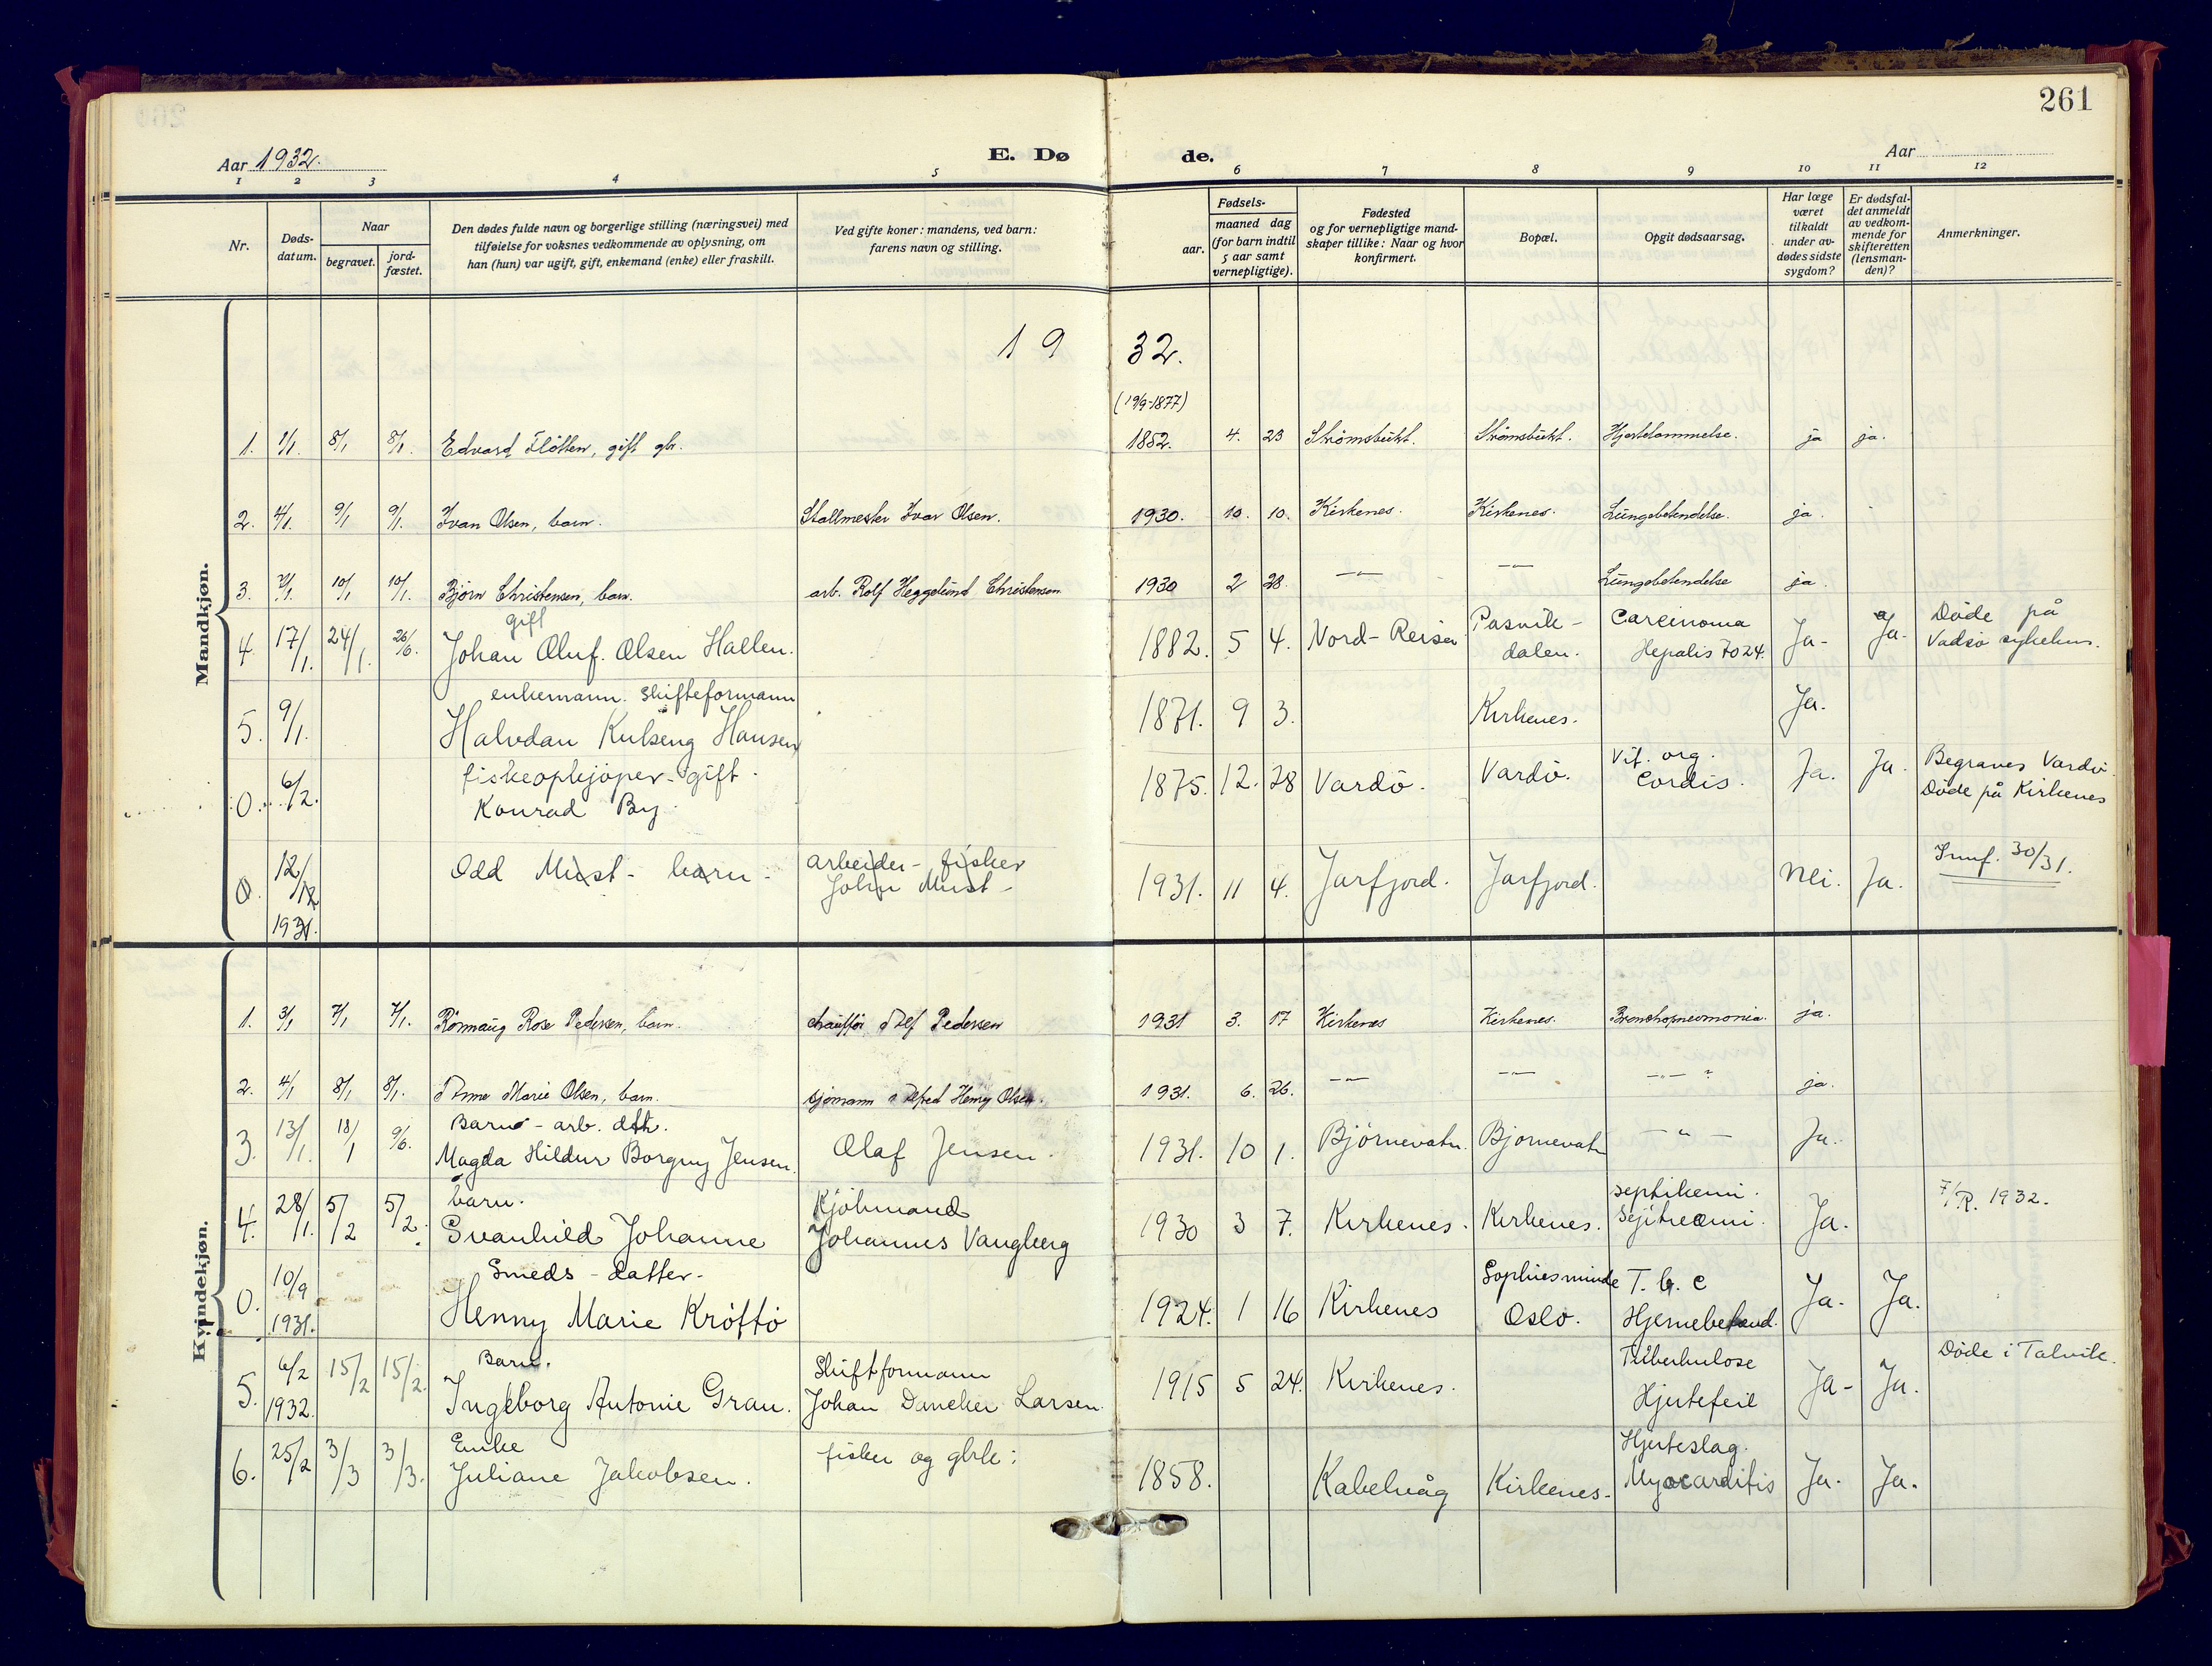 261
Aar 1932.
E. Dø de.
Aar
1 2 3 4 5 6 7 8 9 10 11 12
Nr.
Døds-
datum.
Naar
begravet.
jord-
fæstet.
Den dødes fulde navn og borgerlige stilling (næringsvei) med
tilføielse for voksnes vedkommende av oplysning, om
han (hun) var ugift, gift, enkemand (enke) eller fraskilt.
Ved gifte koner: mandens, ved barn:
farens navn og stilling.
Fødsels-
aar.
maaned dag
(for barn indtil
5 aar samt
vernepligtige).
Fødested
og for vernepligtige mand-
skaper tillike: Naar og hvor
konfirmert.
Bopæl.
Opgit dødsaarsag.
Har læge
været
tilkaldt
under av-
dødes sidste
sygdom?
Er dødsfal-
det anmeldt
av vedkom-
mende for
skifteretten
(lensman-
den)?
Anmerkninger.
Mandkjøn.
19 32.
(19/9-1877)
1. 1/1. 8/1 8/1. Edvard Flötten, gift gbr. 1852. 4. 23 Strömsbukt. Strömsbukt. Hjertelammelse. ja ja.
2. 4/1. 9/1 9/1. Ivan Olsen, barn. Stallmester Ivar Olsen. 1930. 10. 10. Kirkenes. Kirkenes. Lungebetendelse. ja.
3. 7/1. 10/1 10/1. Björn Christensen, barn. arb. Rolf Heggelund Christensen 1930 2 28. —"— —"— Lungebetendelse ja.
gift
4. 17/1. 24/1. 26/6. Johan Oluf. Olsen Hallen. 1882. 5 4. Nord-Reisen Pasvik-
dalen. Carcinoma
Hepatis 7024. Ja- Ja- Döde på
Vadsö sykehus.
enkemann. Skifteformann
5. 9/1. Halvdan Kulseng Hansen 1871. 9 3. Kirkenes. Ja.
fiskeopkjöper - gift.
0. 6/2. Konrad By. 1875. 12. 28 Vardö. Vardö. Vit. org.
Cordis. Ja. Ja. Begraves Vardö.
Döde på Kirkenes
0. 12/12
1931. Odd Must - barn - arbeider - fisker
John Must - 1931. 11 4. Jarfjord. Jarfjord. Nei. Ja. Innf. 30/31.
Kvindekjøn.
1. 3/1 7/1 7/1. Rönnaug Rose Pedersen, barn. chaufför Alf Pedersen 1931 3. 17 Kirkenes Kirkenes. Bronchopneumonia. ja.
2. 4/1 8/1 8/1. Anne Marie Olsen, barn. sjömann Alfred Henry Olsen. 1931. 6. 26. —"— —"— —"— ja.
Barn - arb. dtr.
3. 13/1. 18/1 9/6. Magda Hildur Borgny Jensen. Olaf Jensen. 1931. 10 1. Björnevatn. Björnevatn —"— Ja.
barn.
4. 28/1. 5/2 5/2. Svanhild Johanne Kjöbmand
Johannes Vangberg 1930 3 7. Kirkenes. Kirkenes. septikemi. Ja. 7/R. 1932.
Smeds-datter-
0. 10/9
1931. Henny Marie Kröftö 1924. 1 16 Kirkenes Sophiesminde
Oslo. T. b. c
Hjernebetend. Ja. Ja.
Barn.
5. 6/2
1932. 15/2 15/2. Ingeborg Antonie Grau. Skiftformann
Johan Daneker Larsen. 1915 5 24. Kirkenes. Tuberkulose
Hjertefeil Ja- Ja. Döde i Talvik.
Enke
6. 25/2 3/3 3/3. Juliane Jakobsen. fisker og gbrk: 1858. Kabelvåg Kirkenes. Hjerteslag.
Myocarditis Ja. Ja.